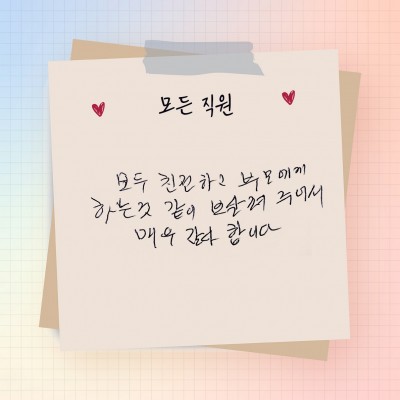 모든 직원
모두 친절하고 부모에게
하는것 같이 보살펴 주어서
매우 감사 합니다